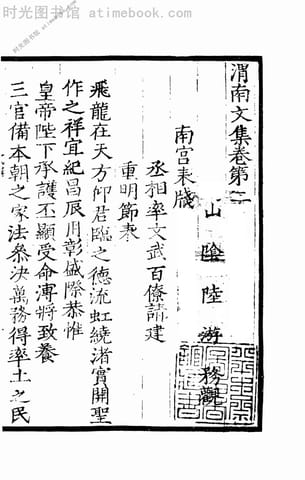 时光图书馆 - www.timebook.cn
渭南文集卷第二
山陰陸游務觀
南宮表牋
丞相率文武百僚請建
重明節表
飛龍在天方仰君臨之德流虹繞渚實開聖
作之祥宜紀昌辰用彰盛際恭惟
皇帝陛下承謨丕顯受命溥將致養
三宮備本朝之家法叅決萬務得率土之民